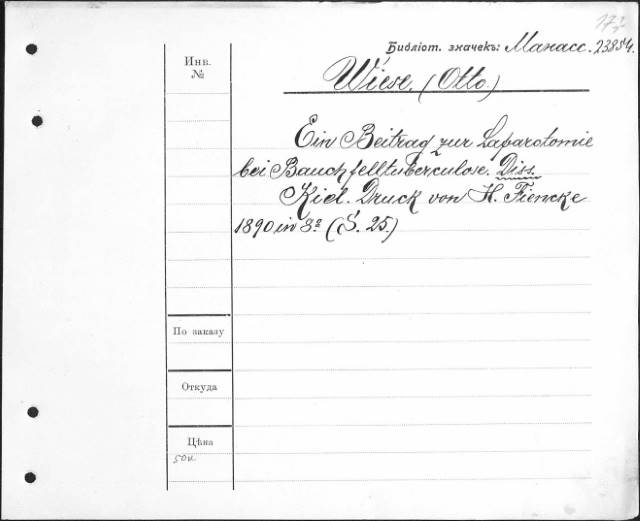 Библіот. значекъ: Манасс. 23854.
Инв.
№
Wiese. (Otto.)
Ein Beitrag zur Laparotomie
bei Bauchfelltuberculose. Diss.
Kiel. Druck von H. Fiencke
1890 in 8º (S. 25.)
По заказу
Откуда
Цѣна
50к